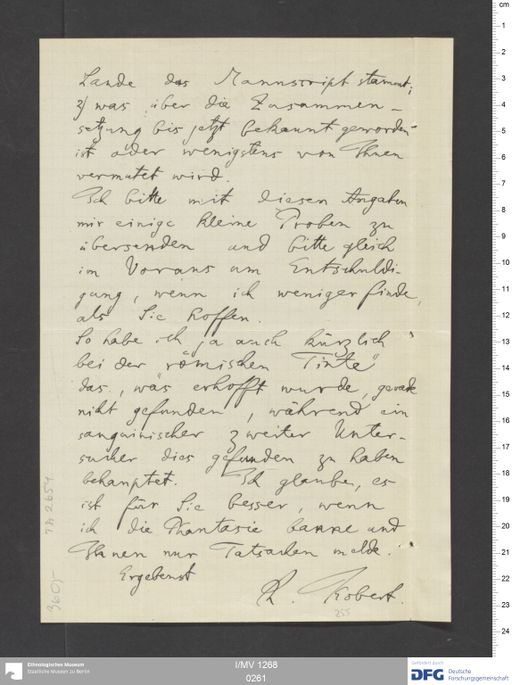 Lande das Mannscript stammt;
2) was über die Zusammen-
setzung bis jetzt bekannt geworden
ist oder wenigstens von Ihnen
vermutet wird.
Ich bitte mit diesen Angaben
mir einige kleine Proben zu
übersenden und bitte gleich
im Voraus um Entschuldi-
gung, wenn ich weniger finde,
als Sie hoffen.
So habe ich ja auch kürzlich
bei der „römischen Tinte"
das, was erhofft wurde, gerade
nicht gefunden, während ein
sanguinischer zweiter Unter-
sucher dies gefunden zu haben
behauptet. Ich glaube, es
ist für Sie besser, wenn
ich die Phantasie banne und
Ihnen nur Tatsachen melde.
Ergebenst
R. Kobert.
255
Ethnologisches Museum
Staatliche Museen zu Berlin
I/MV 1268
0261
gefördert durch
DFG Deutsche
Forschungsgemeinschaft
cm
1
2
3
4
5
6
7
8
9
10
11
12
13
14
15
16
17
18
19
20
21
22
23
24